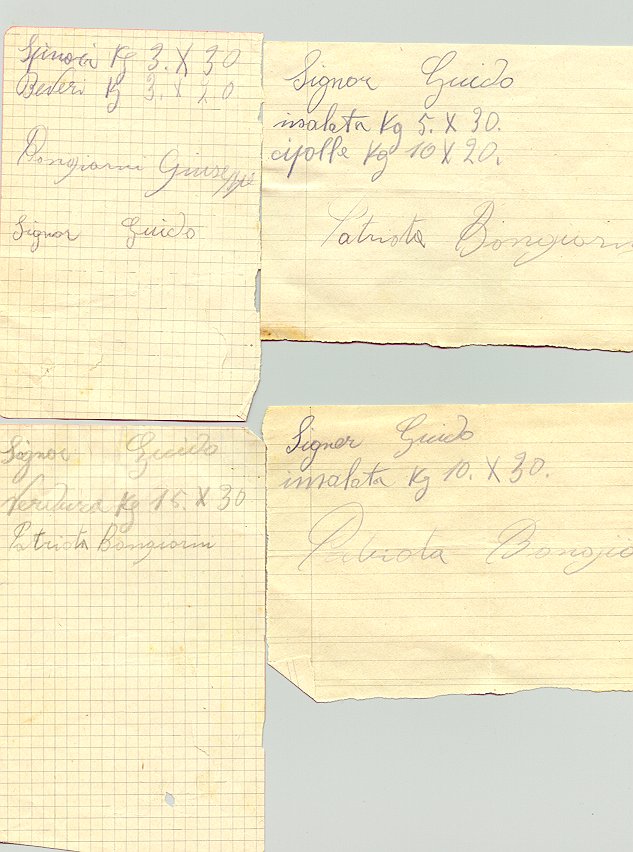 Spinaci Kg 3. X 30
Beveri Kg 3. X 20
Bongiorni Giuseppe
Signor Guido
Signor Guido
insalata Kg 5. X 30.
cipolle Kg 10 X 20.
Patriota Bongiorn
Signor Guido
Verdura Kg 15. X 30
Patriota Bongiorni
Signor Guido
insalata Kg 10. X 30.
Patriota Bongio